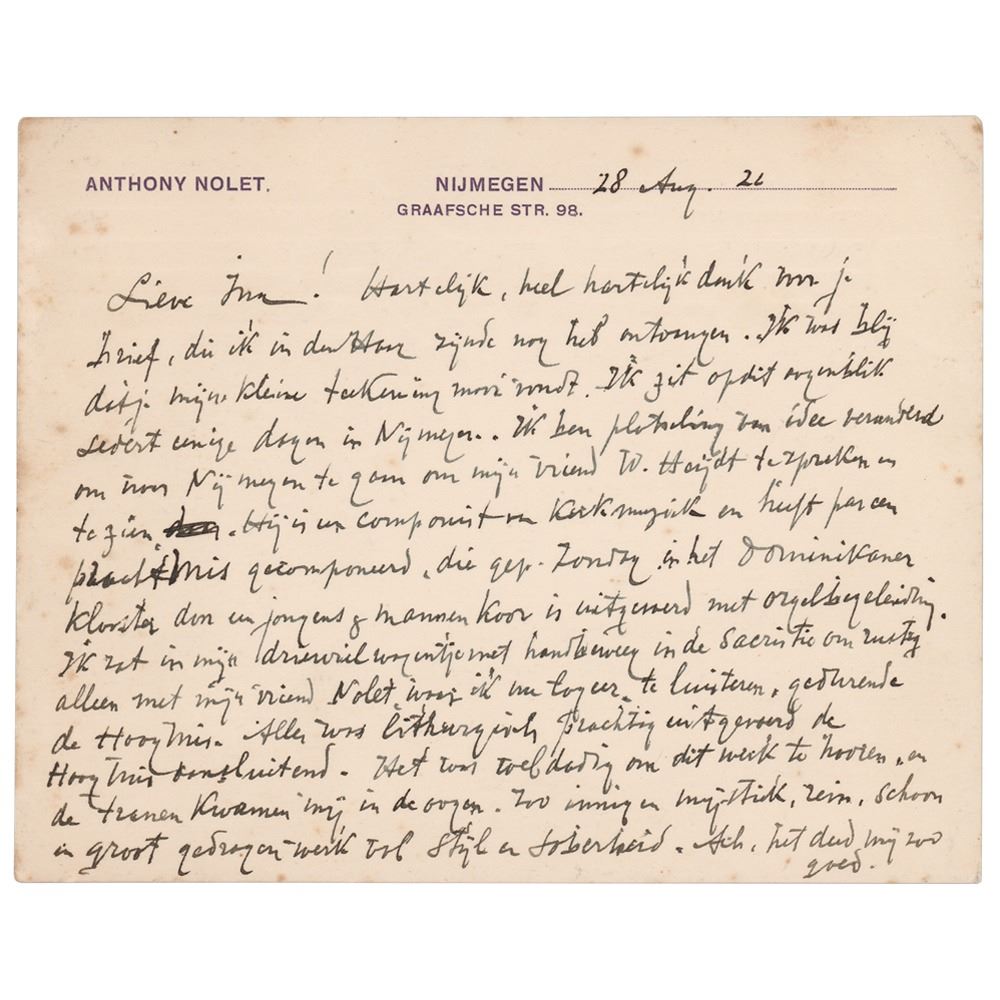 ANTHONY NOLET.
NIJMEGEN 28 Aug. 26
GRAAFSCHE STR. 98.
Lieve Ina! Hartelijk, heel hartelijk dank voor je
brief, die ik in den Haag zijnde nog heb ontvangen. Ik was blij
dat je mijn kleine teekening mooi vondt. Ik zit op dit oogenblik
sedert eenige dagen in Nijmegen. Ik ben plotseling van idee veranderd
om naar Nijmegen te gaan om mijn vriend W. Heijdt te spreken en
te zien. Hij is een componist van Kerkmuziek en heeft pas een
pracht Mis gecomponeerd, die gep. Zondag in het Dominikaner
klooster door een jongens & mannen koor is uitgevoerd met orgelbegeleiding.
Ik zat in mijn driewielwagentje met handbeweeg in de Sacristie om rustig
alleen met mijn vriend Nolet, waar ik nu logeer, te luisteren, gedurende
de Hoogmis. Alles was lithurgisch prachtig uitgevoerd de
Hoog Mis aansluitend. Het was weldadig om dit werk te hooren, en
de tranen kwamen mij in de oogen. Zoo innig en mystiek, rein, schoon
en groot gedragen werk vol Stijl en Soberheid. Ach, het deed mij zoo
goed.